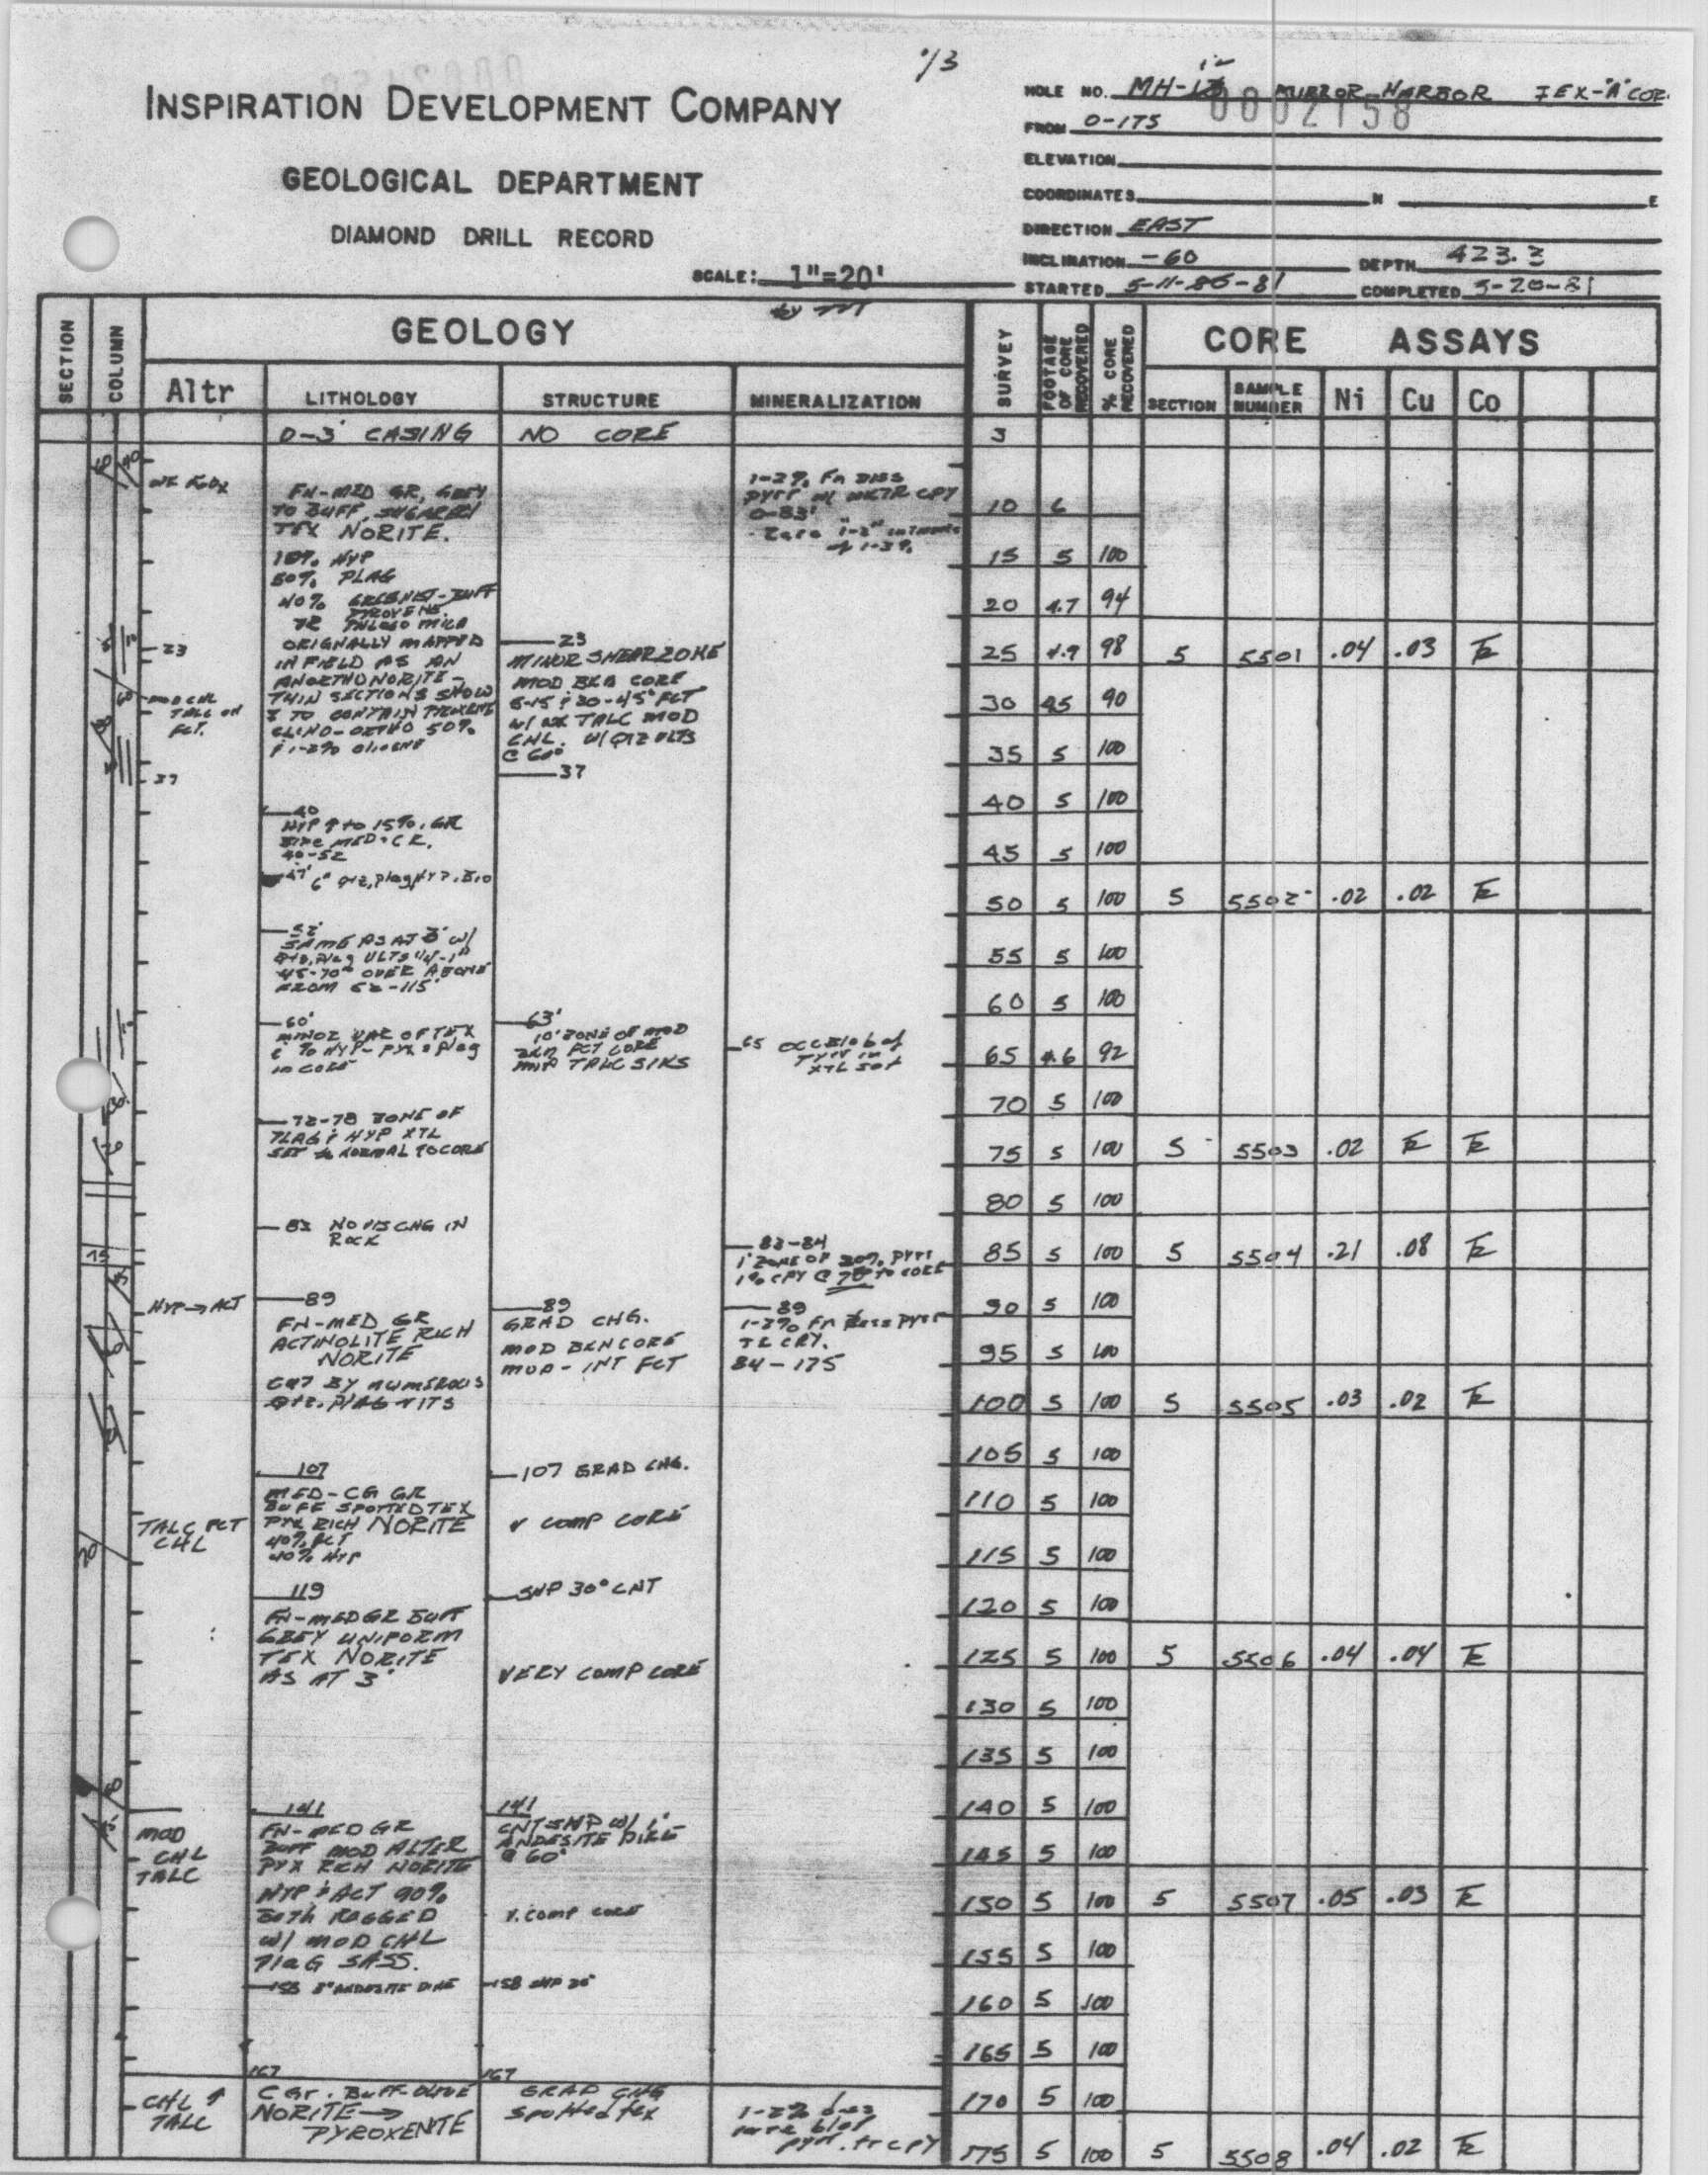 1/3
INSPIRATION DEVELOPMENT COMPANY
GEOLOGICAL DEPARTMENT
DIAMOND DRILL RECORD
SCALE: 1"=20'
HOLE NO. MH- MIRROR HARBOR
0002158
FROM 0-175
ELEVATION
COORDINATES N E
DIRECTION EAST
INCLINATION -60 DEPTH 423.3
STARTED 5-11- -81 COMPLETED 5-20-81
SECTION COLUMN GEOLOGY SURVEY FOOTAGE OF CORE RECOVERED % CORE RECOVERED CORE ASSAYS
Altr LITHOLOGY STRUCTURE MINERALIZATION SECTION SAMPLE NUMBER Ni Cu Co
0-3' CASING NO CORE 3
FN-MED GR, GREY
TO BUFF, SUGAREY
TEX NORITE.
10% HYP
50% PLAG
40% GREENIST-BUFF
PYROXENE
TR PHLOGO MICA
ORIGNALLY MAPPED
IN FIELD AS AN
ANORTHONORITE-
THIN SECTIONS SHOW
TO CONTAIN PYROXENE
CLINO-ORTHO 50%
1-2% OLIVENE
1-2% FN DISS
PYRR W/ CPY
0-83'
23
MOD CHL
TALC ON
FCT.
37
23
MINOR SHEAR ZONE
MOD BKN CORE
5-15 & 30-45° FCT
W/ TALC MOD
CHL. W/ QTZ VLTS
@ 60°
37
40
HYP ↑ to 15%, GR
SIZE MED-
40-52
47' 6" Qtz, Plag, HYP. Bio
52'
SAME AS AT 3' W/
Qtz, Plag VLTS 1/4-1"
45-70° OVER ABOVE
FROM 52-115'
60'
MINOR VAR OF TEX
% HYP-PYX & Plag
in CORE
63'
10' ZONE OF MOD
BKN FCT CORE
TALC SLKS
65 OCC Blob of
Pyrr in
XTL
72-78 ZONE OF
PLAG & HYP XTL
SET NORMAL TO CORE
83 NO VIS CHG IN
ROCK
83-84
1' ZONE OF 20% PYRR
1% CPY @ 70° TO CORE
HYP→ACT
89
FN-MED GR
ACTINOLITE RICH
NORITE
CUT BY NUMEROUS
Qtz. PLAG VLTS
89
GRAD CHG.
MOD BKN CORE
MOD-INT FCT
89
1-2% Fn Diss Pyrr
TR CPY.
84-175
107
MED-CG GR
BUFF SPOTTED TEX
PYX RICH NORITE
40% ACT
40% HYP
107 GRAD CHG.
V COMP CORE
TALC FCT
CHL
119
FN-MED GR BUFF
GREY UNIFORM
TEX NORITE
AS AT 3'
SHP 30° CNT
VERY COMP CORE
MOD
CHL
TALC
141
FN-MED GR
BUFF MOD ALTER
PYX RICH NORITE
HYP & ACT 90%
BOTH RAGGED
W/ MOD CHL
PlaG SASS.
158 ANDESITE DIKE
141
CNT SHP W/ 1'
ANDESITE DIKE
@ 60°
V. COMP CORE
158 SHP
CHL ↑
TALC
167
C Gr. BUFF-OLIVE
NORITE→
PYROXENITE
167
GRAD CHG
Spotted tex
1-2% diss
rare blot
pyrr. tr CPY
10 6
15 5 100
20 4.7 94
25 4.9 98 5 5501 .04 .03 Tr
30 4.5 90
35 5 100
40 5 100
45 5 100
50 5 100 5 5502 .02 .02 Tr
55 5 100
60 5 100
65 4.6 92
70 5 100
75 5 100 5 5503 .02 Tr Tr
80 5 100
85 5 100 5 5504 .21 .08 Tr
90 5 100
95 5 100
100 5 100 5 5505 .03 .02 Tr
105 5 100
110 5 100
115 5 100
120 5 100
125 5 100 5 5506 .04 .04 Tr
130 5 100
135 5 100
140 5 100
145 5 100
150 5 100 5 5507 .05 .03 Tr
155 5 100
160 5 100
165 5 100
170 5 100
175 5 100 5 5508 .04 .02 Tr